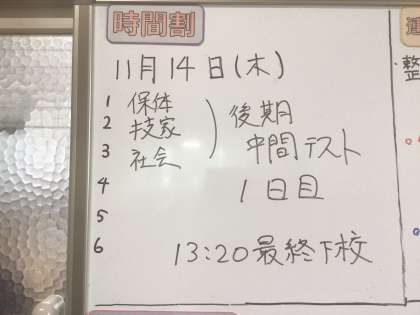 時間割
11月14日(木)
1 保体
2 技家
3 社会
後期
中間テスト
1日目
4
5
6
13:20最終下校
整